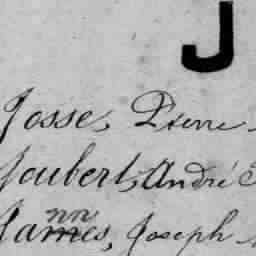 J
Josse, Pierre
Joubert, André
nn
James, Joseph